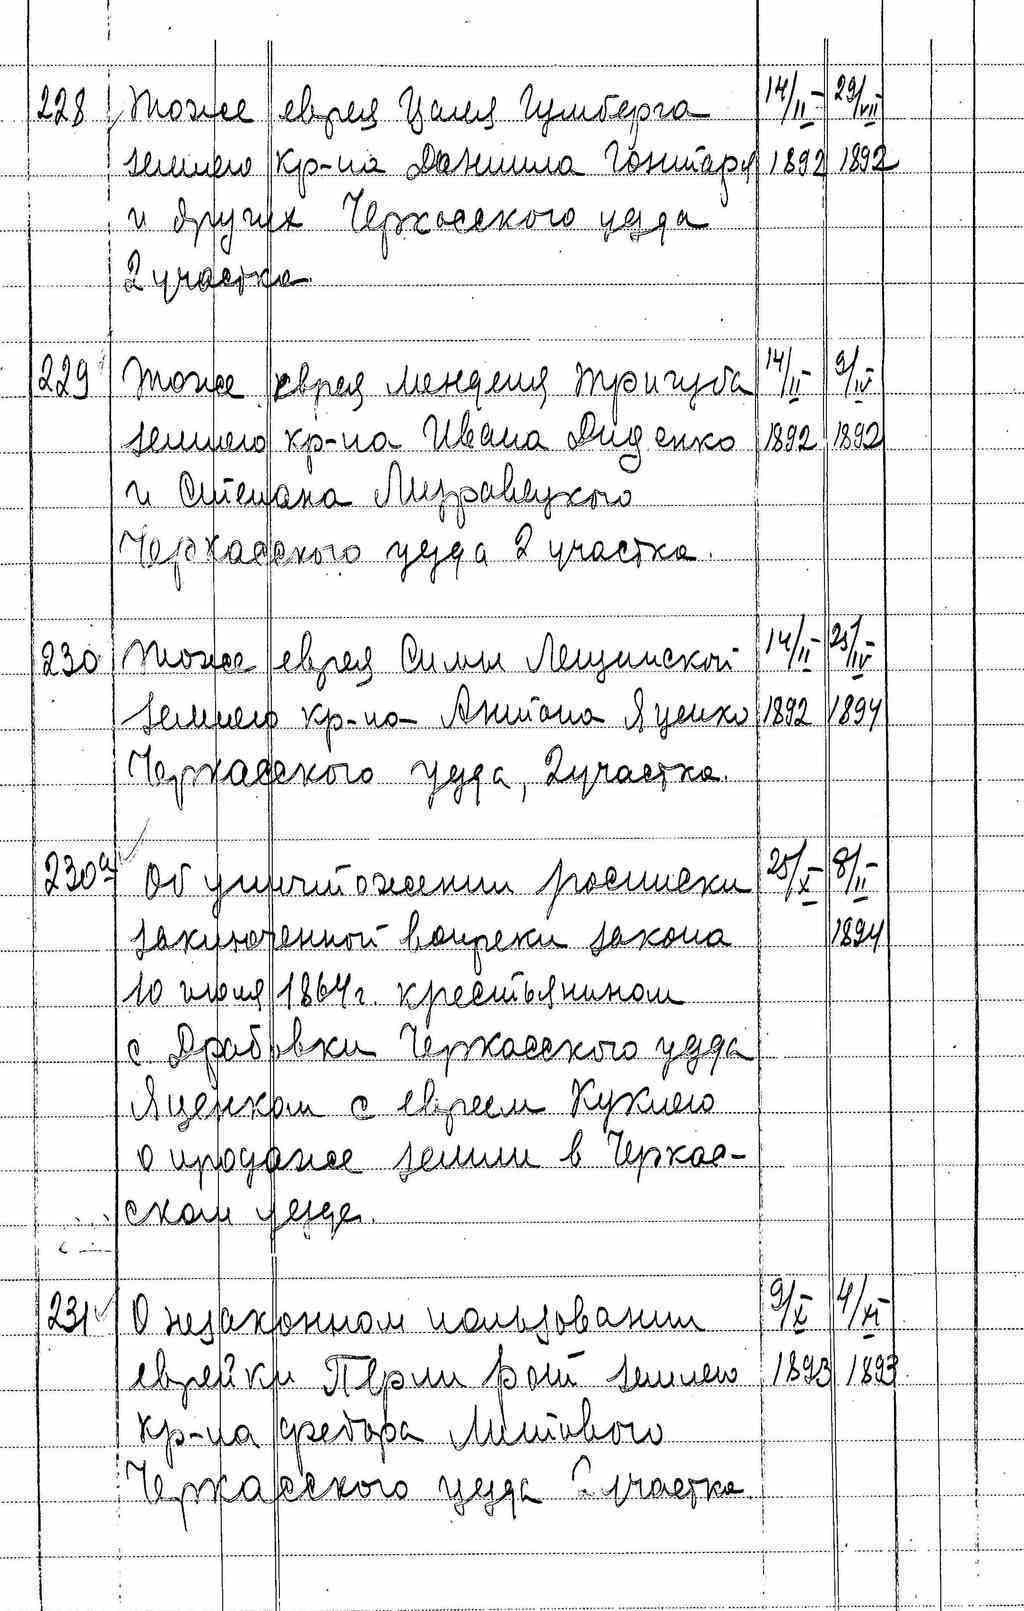 228 Тоже еврея Цаля Гумберга 14/II- 29/VII
землею кр-на Данила Гонтаря 1892 1892
и других Черкасского уезда
2 участка.
229 Тоже еврея Менделя Тригуба 14/II- 9/IV-
землею кр-на Ивана Диденко 1892 1892
и Степана Мировецкого
Черкасского уезда 2 участка.
230 Тоже еврея Симы Лещинской 14/II- 25/IV-
землею кр-на Антона Яценко 1892 1894
Черкасского уезда, 2 участка.
230а Об уничтожении росписки 25/X- 8/II-
заключенной вопреки закона 1894
10 июля 1864г. крестьянином
с. Драбовки Черкасского уезда
Яценком с евреем Куклею
о продаже земли в Черкас-
ском уезде.
231 О незаконном пользовании 9/X- 4/XI-
еврейки Перли Рот землею 1893 1893.
кр-на Федора Митового
Черкасского уезда 2 участка.